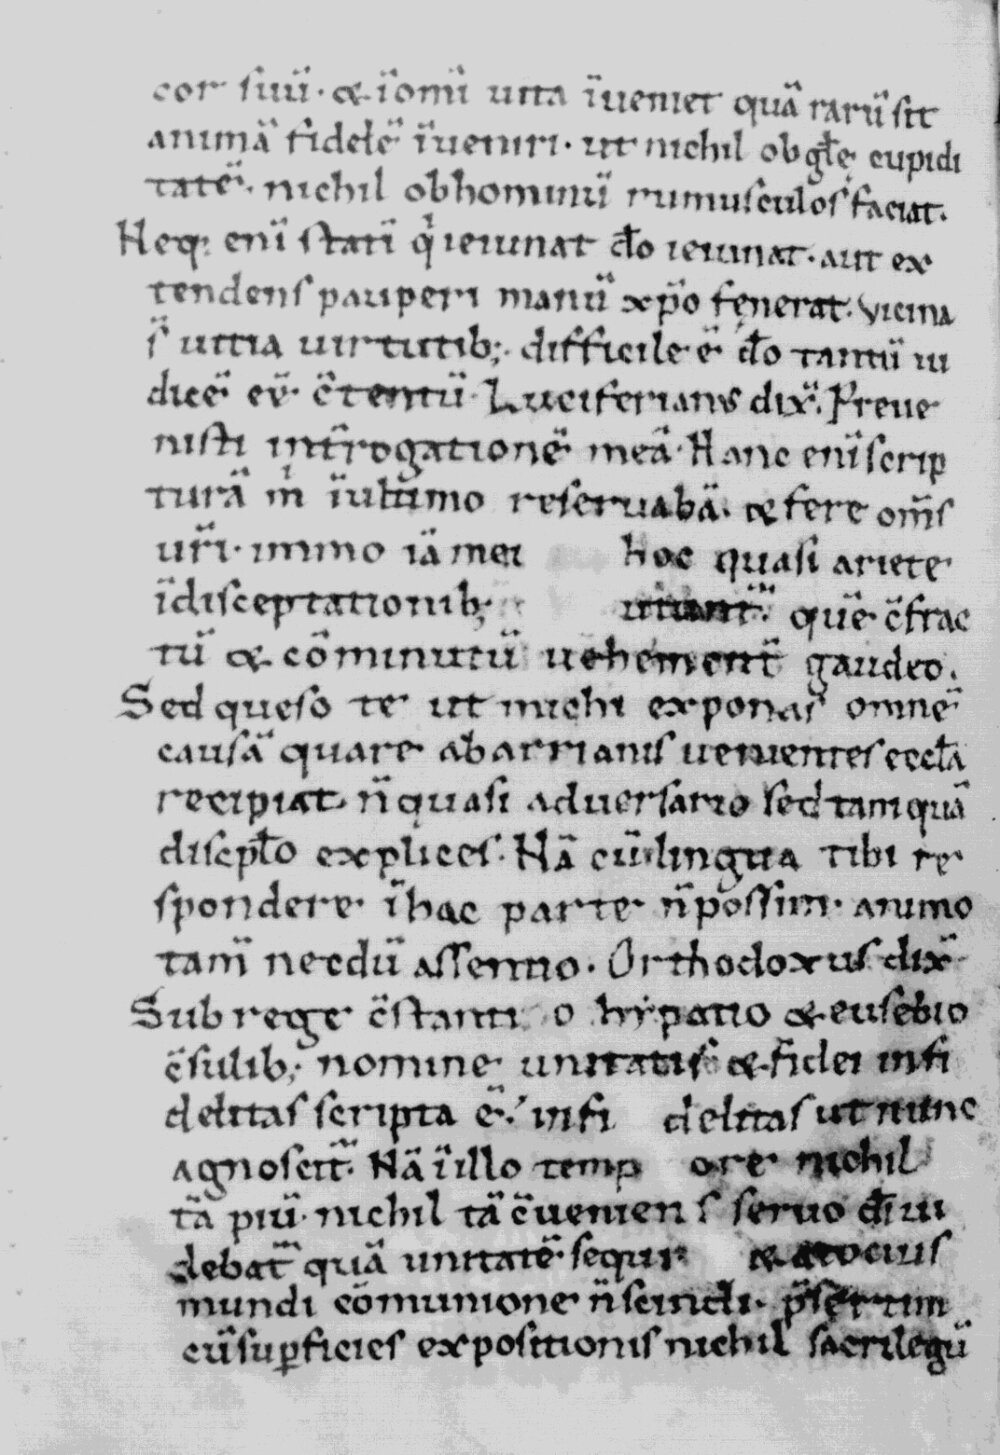 cor suū· & ī om̄i uita īueniet quā rarū sit
animā fidelē īueniri· ut nichil ob gl̄ę cupidi
tatē· nichil ob hominū rumusculos faciat.
Neq; enī statī q̍ ieiunat dō ieiunat· aut ex
tendens pauperi manū xp̄o fęnerat. Vicina
s̄ uitia uirtutib;· difficile ē dō tantū iu
dicē eē c̄tentū· Luciferianus dix̄. Preue
nisti int̄rogationē meā· Hanc enī scrip
turā m̍ī ultimo reseruabā. & fere om̄s
ur̄i· immo iā mei hoc quasi ariete
ī disceptationib; utunt̄. quē c̄frac
tū & cōminutū uehement̄ gaudeo.
Sed queso te ut michi exponas omnē
causā quare ab arrianis uenientes eccłā
recipiat· n̄ quasi aduersario sed tam quā
discpl̄o explices. Nā cū lingua tibi re
spondere ī hac parte n̄ possim· animo
tam̄ necdū assentio. Orthodoxus dix̄
Sub rege c̄stantio hypatio & eusebio
c̄sulib; nomine unitatis & fidei infi
delitas scripta ē· infidelitas ut nunc
agnoscit̄. Nā ī illo tempore nichil
tā piū· nichil tā c̄ueniens seruo dī ui
debat̄ quā unitatē sequi & a tocius
mundi cōmunione n̄ scindi· p̄sertim
cū supficies expositionis nichil sacrilegū